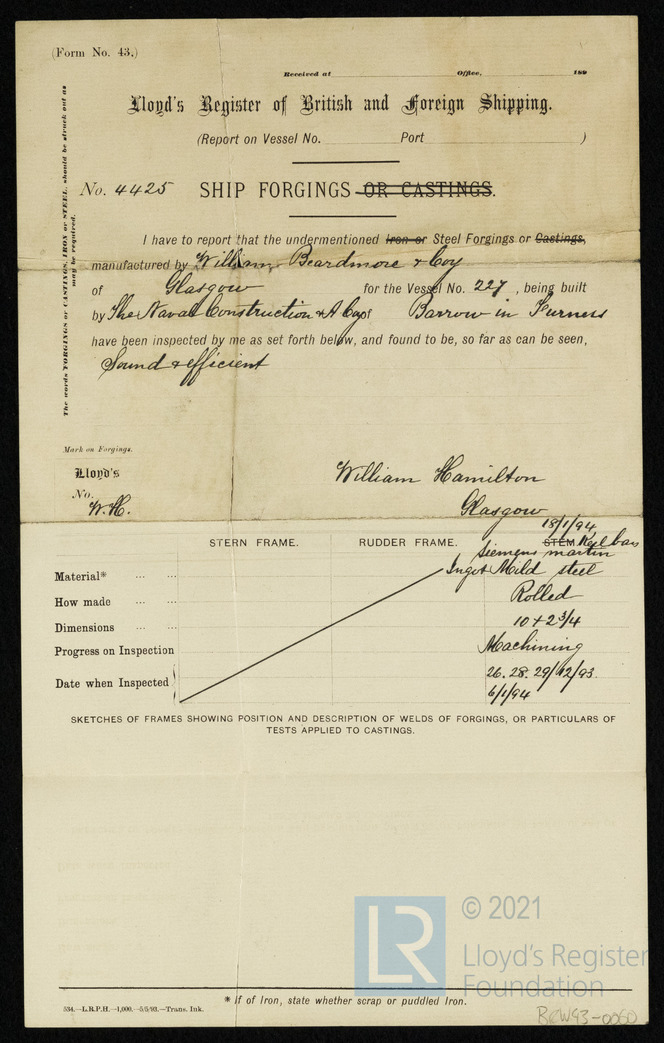 (Form No. 43.)
Received at Office, 189
Lloyd's Register of British and Foreign Shipping.
(Report on Vessel No. Port )
No. 4425 SHIP FORGINGS OR CASTINGS.
The words FORGINGS or CASTINGS, IRON or STEEL, should be struck out as
may be required.
I have to report that the undermentioned Iron or Steel Forgings or Castings,
manufactured by William Beardmore & Coy
of Glasgow for the Vessel No. 227, being built
by The Naval Construction & A Coy of Barrow in Furness
have been inspected by me as set forth below, and found to be, so far as can be seen,
Sound & efficient
Mark on Forgings.
Lloyd's
No.
W.H.
William Hamilton
Glasgow
18/1/94
STERN FRAME. RUDDER FRAME. STEM Keel bar
Siemens martin
Material* ... ... Ingot Mild steel
How made ... ... Rolled
Dimensions ... ... 10 + 2 3/4
Progress on Inspection Machining
Date when Inspected 26. 28. 29/12/93.
6/1/94
SKETCHES OF FRAMES SHOWING POSITION AND DESCRIPTION OF WELDS OF FORGINGS, OR PARTICULARS OF
TESTS APPLIED TO CASTINGS.
LR
© 2021
Lloyd's Register
Foundation
* If of Iron, state whether scrap or puddled Iron.
534.—L.R.P.H.—1,000.—5/5/93.—Trans. Ink.
BRW93-0060